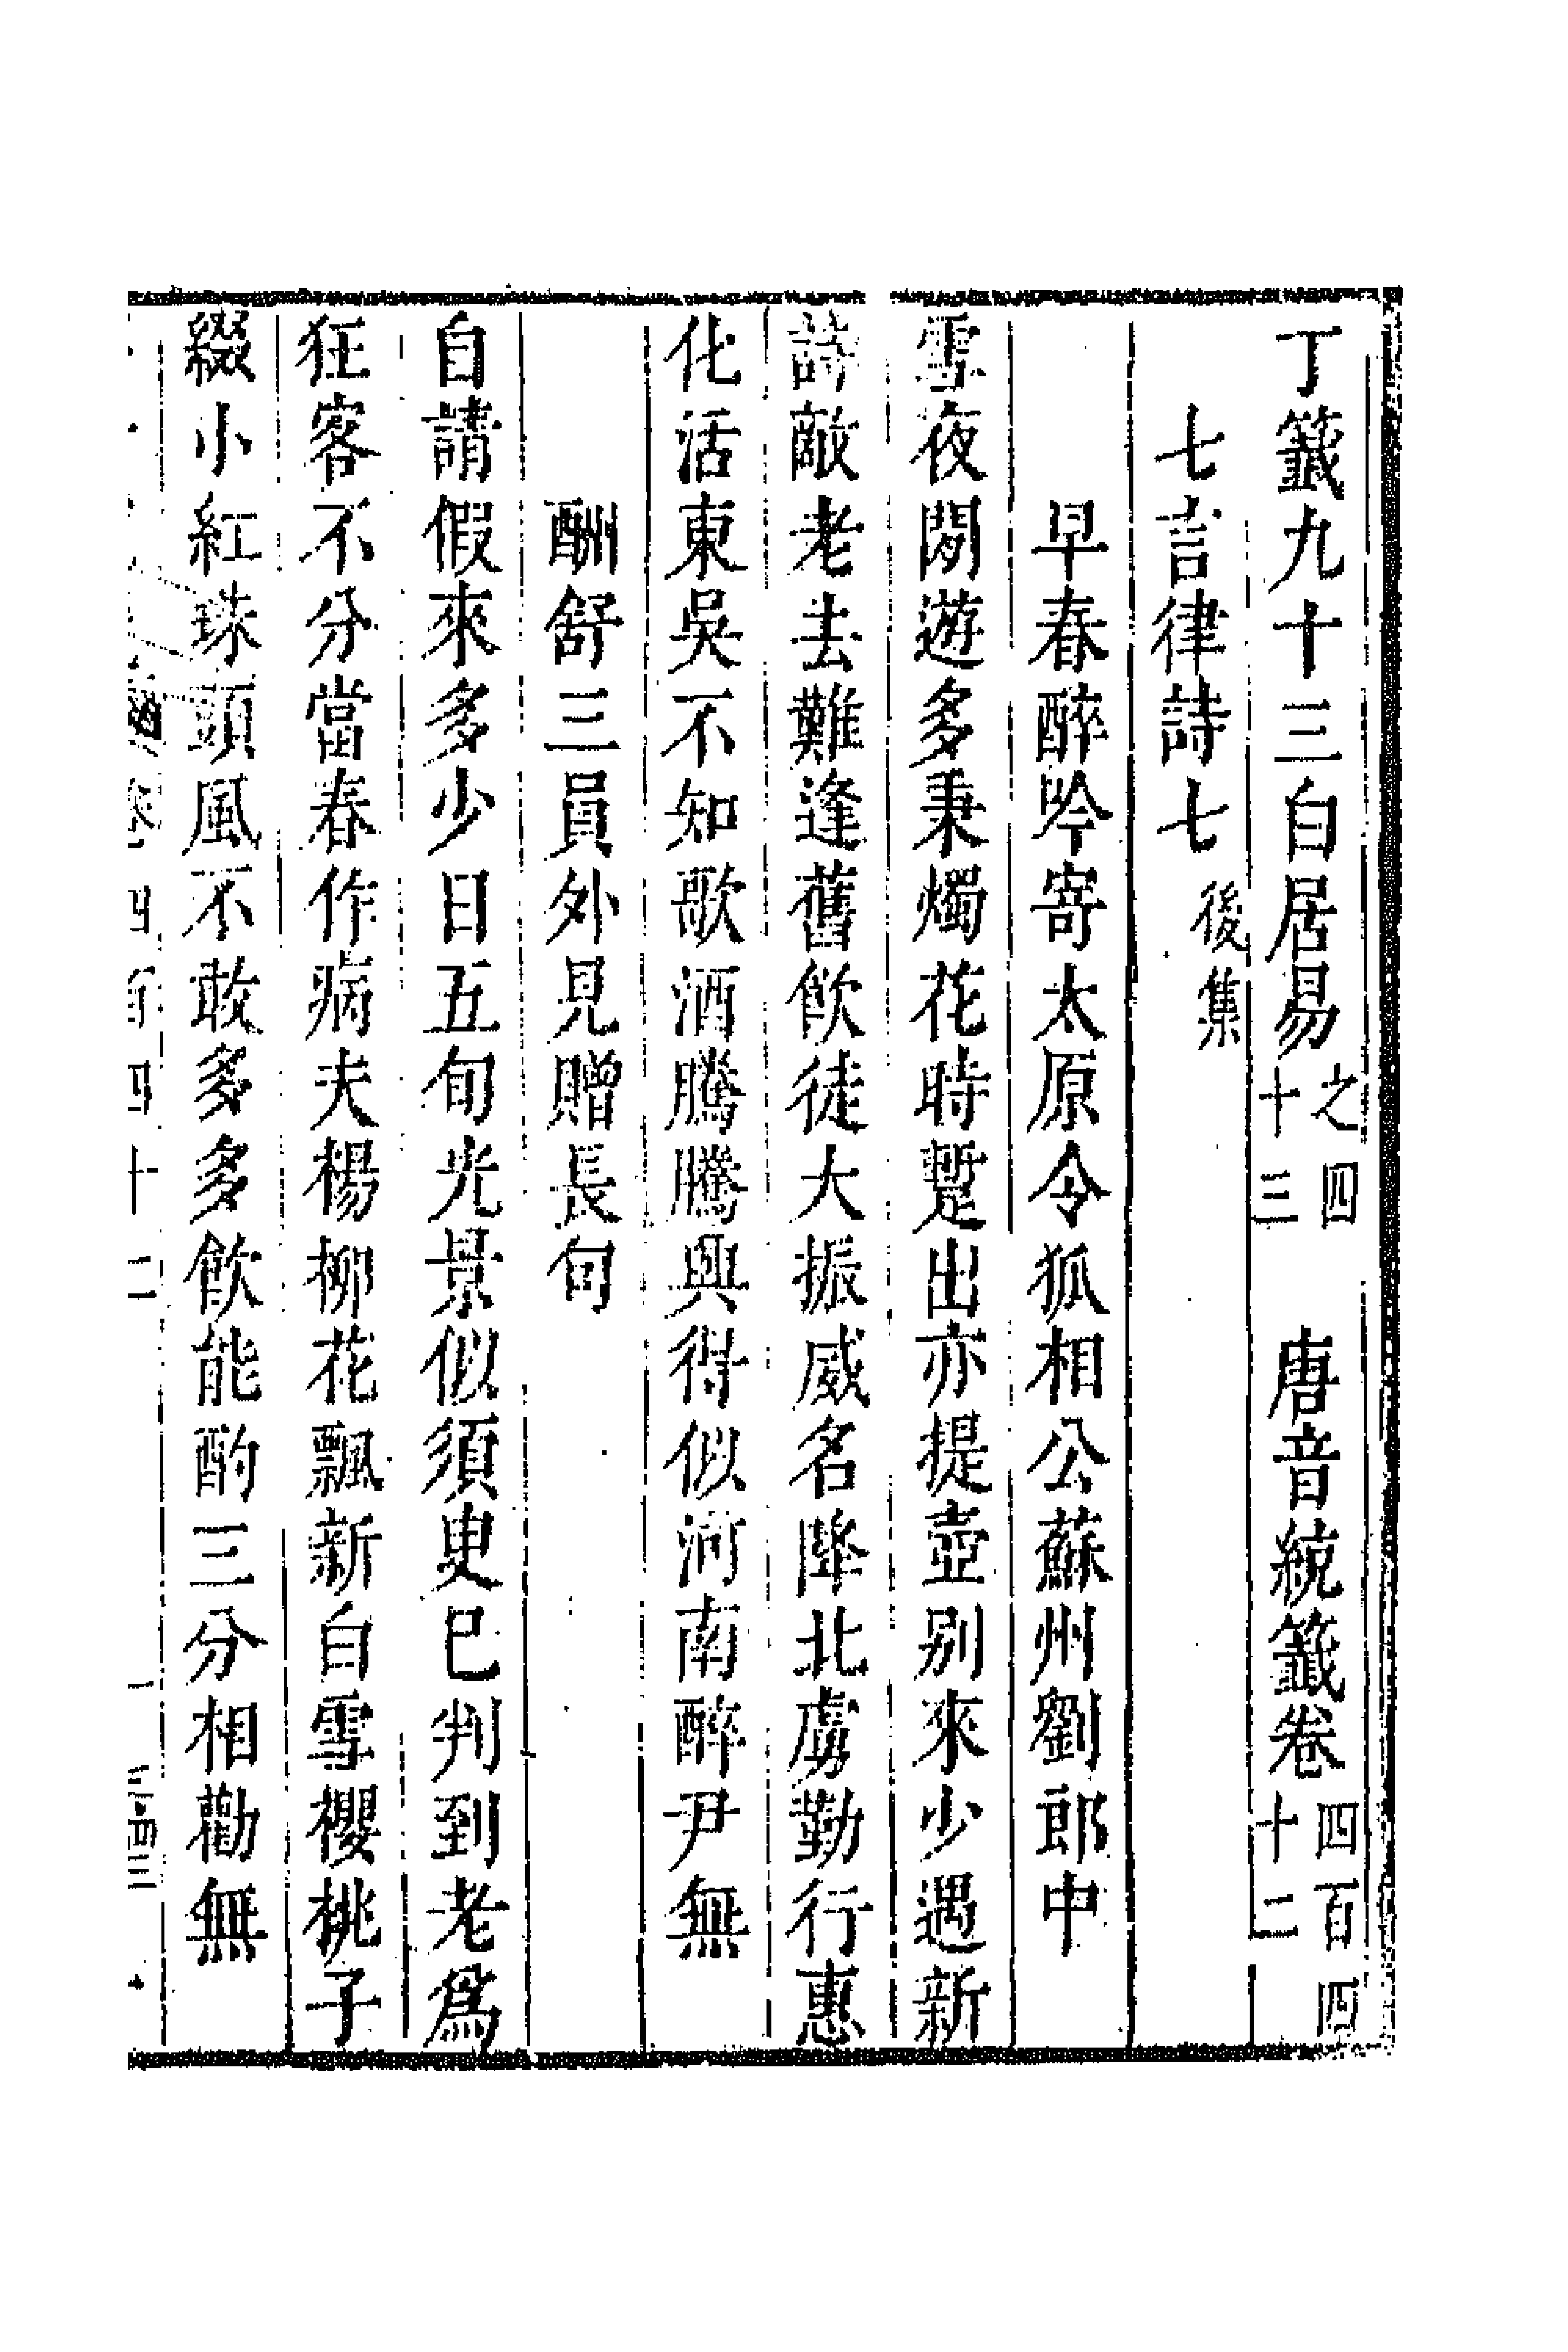 丁籖九十三白居易之四十三　唐音統籖卷四百四十二
七言律詩七後集
早春醉吟寄太原令狐相公蘇州劉郎中
雪夜閑遊多秉燭花時蹔出亦提壺别來少遇新
詩敵老去難逢舊飲徒大振威名降北虜勤行惠
化活東吳不知歌酒騰騰興得似河南醉尹無
酬舒三員外見贈長句
自請假來多少日五旬光景似須臾已判到老爲
狂客不分當春作病夫楊柳花飄新白雪櫻桃子
綴小紅珠頭風不敢多多飲能酌三分相勸無